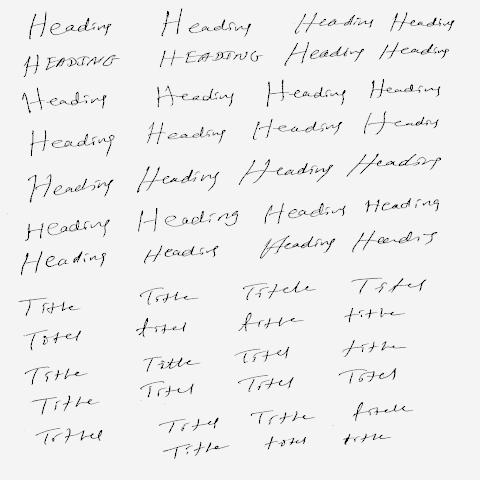 Heading Heading Heading Heading
HEADING HEADING Heading Heading
Heading Heading Heading Heading
Heading Heading Heading Heading
Heading Heading Heading Heading
Heading Heading Heading Heading
Heading Heading Heading Heading
Title Title Title Titel
Totel titel title title
Title Title Titel title
Title Titel Titel Totel
Titled Titel Title
Title totel title